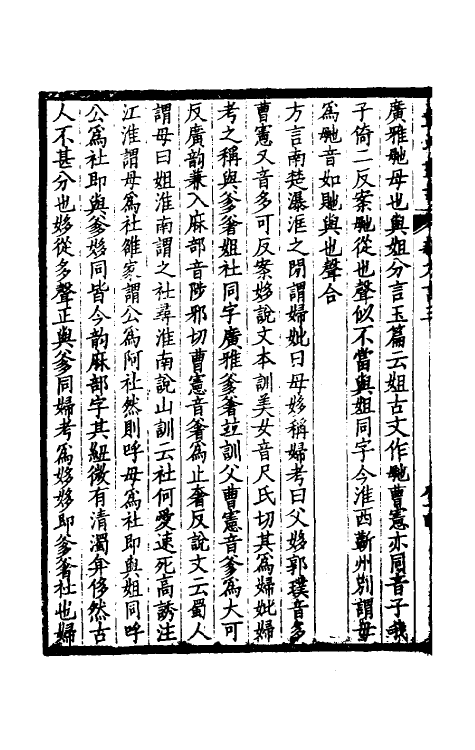 廣雅毑母也與姐分言玉篇云姐古文作毑曹憲亦同音子我
子倚二反案毑從也聲似不當與姐同字今淮西蘄州别謂母
爲毑音如馳與也聲合
方言南楚瀑洭之閒謂婦妣曰母㛆稱婦考曰父㛆郭璞音多
曹憲又音多可反案㛆說文本訓美女音尺氏切其爲婦妣婦
考之稱與爹奢姐社同字廣雅爹奢竝訓父曹憲音爹爲大可
反廣韵兼入麻部音陟邪切曹憲音奢爲止奢反說文云蜀人
謂母曰姐淮南謂之社尋淮南說山訓云社何愛速死高誘注
江淮謂母爲社雒家謂公爲阿社然則呼母爲社即與姐同呼
公爲社即與爹㛆同皆今韵麻部字其紐微有清濁弇侈然古
人不甚分也㛆從多聲正與爹同婦考爲㛆㛆即爹奢社也婦